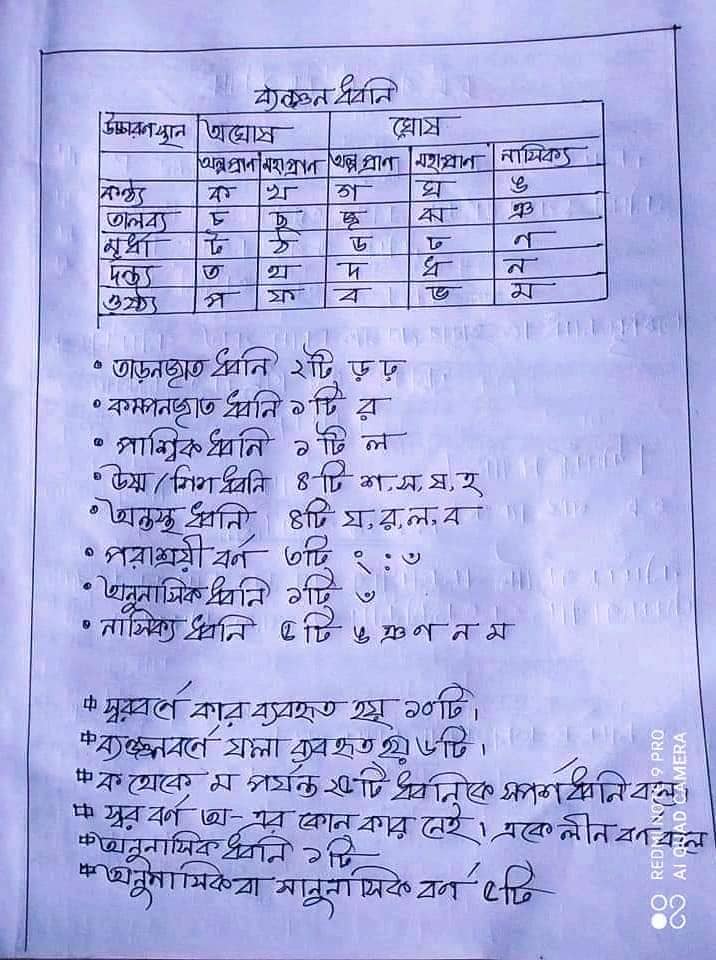 ব্যঞ্জন ধ্বনি
উচ্চারণস্থান অঘোষ ঘোষ
অল্পপ্রাণ মহাপ্রাণ অল্পপ্রাণ মহাপ্রাণ নাসিক্য
কন্ঠ্য ক খ গ ঘ ঙ
তালব্য চ ছ জ ঝ ঞ
মূর্ধা ট ঠ ড ঢ ণ
দন্ত্য ত থ দ ধ ন
ওষ্ঠ্য প ফ ব ভ ম
• তাড়নজাত ধ্বনি ২টি ড় ঢ়
• কম্পনজাত ধ্বনি ১টি র
• পার্শ্বিক ধ্বনি ১টি ল
• উষ্ম / শিশ ধ্বনি ৪টি শ, স, ষ, হ
• অন্তস্থ ধ্বনি ৪টি য, র, ল, ব
• পরাশ্রয়ী বর্ণ ৩টি ং ঃ ঁ
• অনুনাসিক ধ্বনি ১টি ঁ
• নাসিক্য ধ্বনি ৫টি ঙ ঞ ণ ন ম
# স্বরবর্ণে কার ব্যবহৃত হয় ১০টি।
# ব্যঞ্জনবর্ণে ফলা ব্যবহৃত হয় ৬টি।
# ক থেকে ম পর্যন্ত ২৫টি ধ্বনিকে স্পর্শধ্বনি বলে।
# স্বর বর্ণ অ- এর কোন কার নেই। একে লীন বর্ণ বলে
# অনুনাসিক ধ্বনি ১টি
# অনুনাসিক বা সানুনাসিক বর্ণ ৫টি
REDMI NOTE 9 PRO
AI QUAD CAMERA